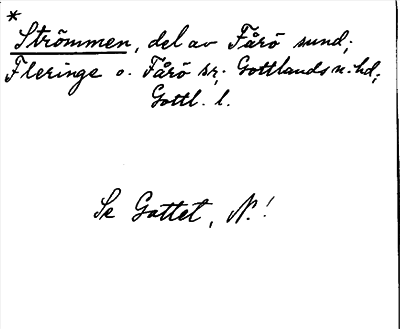 *
Strömmen, del av Fårö sund;
Fleringe o. Fårö sr; Gottlands n. hd;
Gottl. l.
Se Gattet, N.!